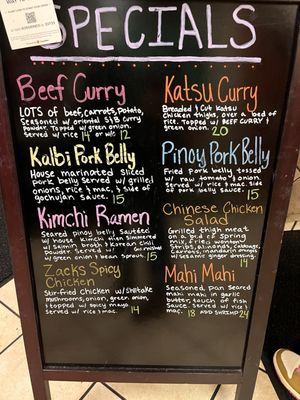 SPECIALS
Beef Curry
LOTS of beef, carrots, potato,
Seasoned w/ oriental S&B curry
Powder. Topped w/ green onion.
served w/ rice 14 or w/o 12
Kalbi Pork Belly
House marinated sliced
pork belly served w/ grilled
onions, rice & mac, & side of
gochujan sauce. 15
Kimchi Ramen
Seared pinoy belly sautéed
w/ house kimchi then simmered
w/ Saimin broth & Korean chili
powder. Topped w/ spicy mayo,
green onion & bean sprouts. 15
Zacks Spicy
Chicken
Stir-fried chicken w/ shiitake
mushrooms, onion, green onion,
& topped w/ spicy mayo
served w/ rice & mac. 14
Katsu Curry
Breaded & Cut Katsu
chicken thighs, over a bed of
rice. Topped w/ BEEF CURRY &
green onion. 20
Pinoy Pork Belly
Fried Pork belly tossed
w/ raw tomato & onion.
Served w/ rice & mac. side
of pork belly sauce 15
Chinese Chicken
Salad
Grilled thigh meat
on a bed of spring
mix, fried wonton
strips, almonds, cabbage,
w/ sesame ginger dressing.
14
Mahi Mahi
Seasoned pan seared
mahi mahi in garlic
butter, touch of fish
sauce. Served w/ rice &
mac. 18 ADD SHRIMP 24